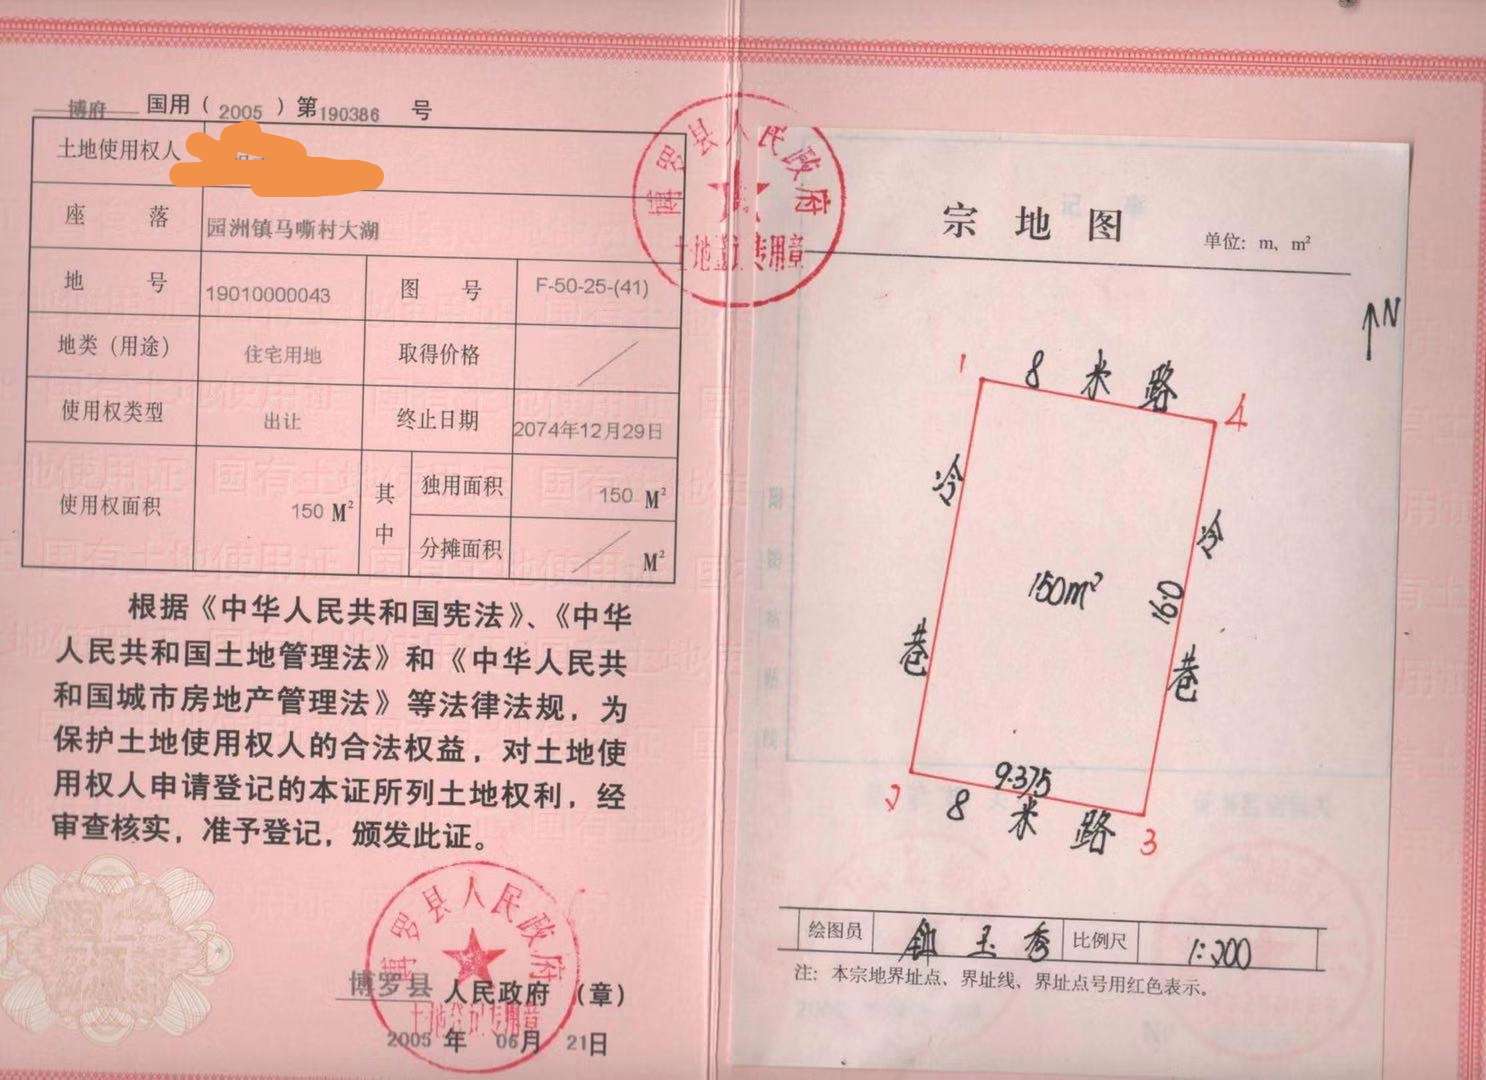 博府 国用（2005）第190386 号
土地使用权人
座 落 园洲镇马嘶村大湖
地 号 19010000043 图 号 F-50-25-(41)
地类（用途） 住宅用地 取得价格
使用权类型 出让 终止日期 2074年12月29日
使用权面积 150 M² 其中 独用面积 150 M²
分摊面积 M²
根据《中华人民共和国宪法》、《中华
人民共和国土地管理法》和《中华人民共
和国城市房地产管理法》等法律法规，为
保护土地使用权人的合法权益，对土地使
用权人申请登记的本证所列土地权利，经
审查核实，准予登记，颁发此证。
博罗县 人民政府 （章）
2005 年 06月 21日
博罗县人民政府
土地登记专用章
博罗县人民政府
土地登记专用章
宗地图
单位：m、m²
N
1
8 米 路
4
冷
冷
150m²
16.0
巷
巷
2
9.375
8 米 路
3
绘图员 玉秀 比例尺 1:200
注：本宗地界址点、界址线、界址点号用红色表示。